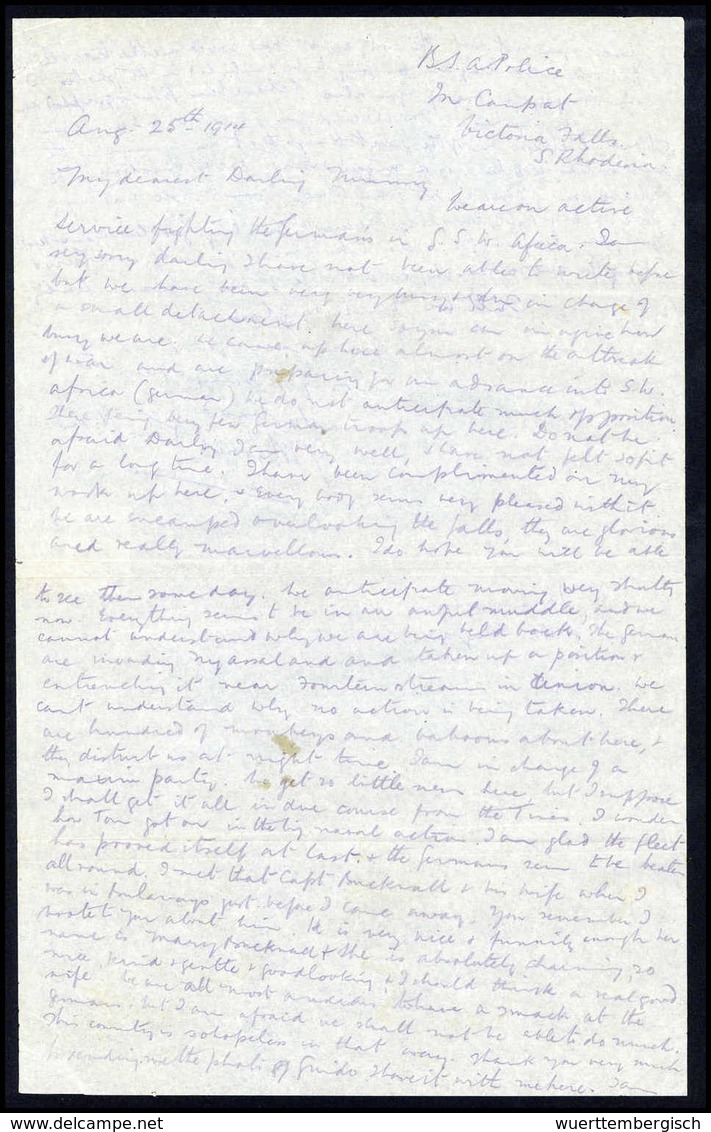 B.S.A. Police
In Camp at
Victoria Falls.
S. Rhodesia.
Aug. 25th 1914
My dearest Darling Mummy
We are on active
service fighting the Germans in G.S.W. Africa. I am
very sorry darling I have not been able to write before
but we have been very very busy & I am in charge of
a small detachment here so you can imagine how
busy we are. We came up here almost on the outbreak
of war and are preparing for an advance into S.W.
Africa (German) We do not anticipate much opposition
there being very few German troops up here. Do not be
afraid Darling I am very well, & have not felt so fit
for a long time. I have been complimented on my
work up here, & every body seems very pleased with it.
We are encamped overlooking the falls, they are glorious
and really marvellous. I do hope you will be able
to see them some day. We anticipate moving very shortly
now. Everything seems to be in an awful muddle, and we
cannot understand why we are being held back. The German
are invading Nyassaland and taken up a position &
entrenching it near Fourteen streams in Union. We
can't understand why no action is being taken. There
are hundred of monkeys and baboons about here, &
they disturb us at night time. I am in charge of a
maxim party. We get so little news here, but I suppose
I shall get it all in due course from the Times. I wonder
how Tom got on in the big naval action. I am glad the fleet
has proved itself at last & the Germans seem to be beaten
all round. I met that Capt Bucknall & his wife when I
was in Bulawayo just before I came away. You remember I
wrote to you about him. He is very nice & funnily enough her
name is Mary Bucknall & she is absolutely charming, so
nice, kind & gentle & good looking & I should think a real good
wife. We are all most anxious to have a smack at the
Germans, but I am afraid we shall not be able to do much.
This country is so hopeless in that way. Thank you very much
for sending me the photo of Guido. I have it with me here. I am
wuerttembergisch